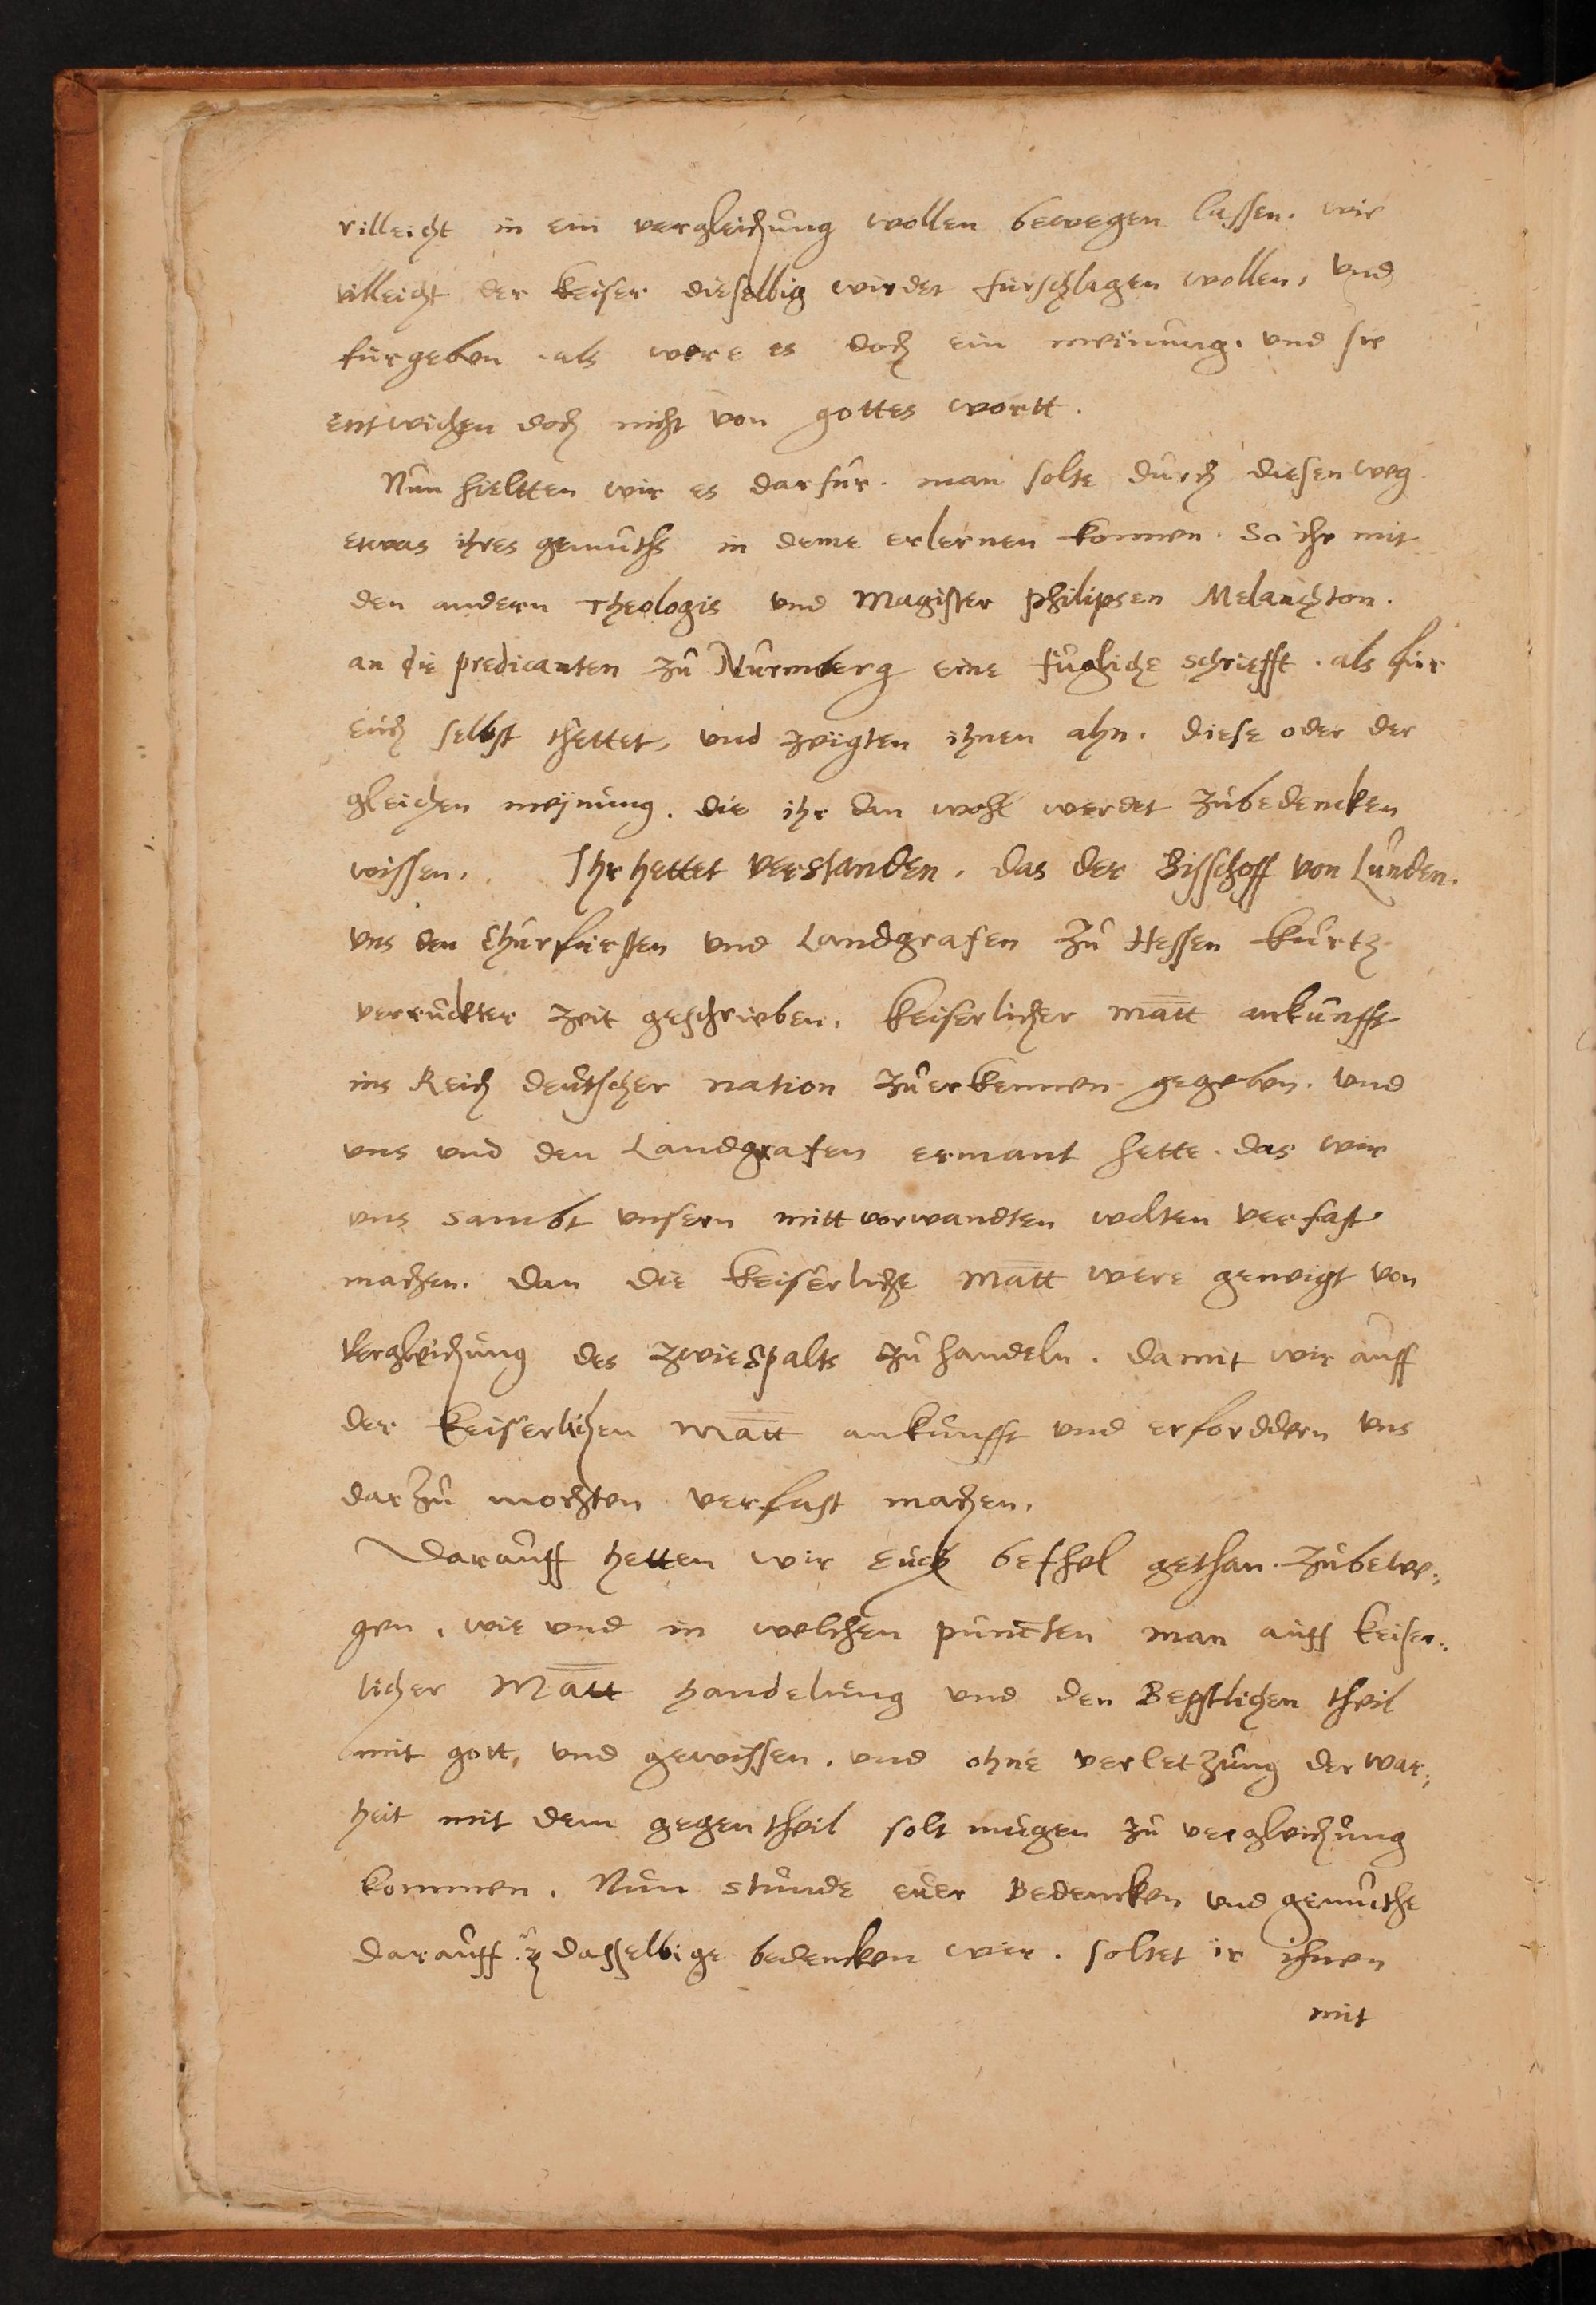 villeicht in ein vergleichung wollen bewegen lassen. wie
villeicht der keiser dieselbig wirdet furschlagen wollen, vnd
furgeben als were es doch ein meinung. vnd sie
entwichen doch nicht von gottes wortt.
Nun hieltten wir es darfur. man solte durch diesen weg
etwas ihres gemuths in deme erlernen konnen. So ihr mit
den andern Theologis vnd Magister Philipsen Melanchton.
an die predicanten zu Nurmberg eine fugliche schriefft. als fur
euch selbst thettet, vnd zeigten ihnen ahn. diese oder der
gleichen meynung. die ihr dan wohl werdet zubedencken
wissen. Ihr hettet verstanden. das der Bisschoff von Lunden.
vns den Churfursten vnd Landgrafen zu Hessen kurtz
verruckter zeit geschrieben. keiserlicher Matt ankunfft
ins Reich deutscher nation zuerkennen gegeben. vnd
vns vnd den Landgrafen ermant hette. das wir
vns sambt vnsern mittvorwandten wolten verfast
machen. dan die keiserliche Matt were geneigt von
vergleichung des zwiespalts zu handeln. damit wir auff
der keiserlichen Matt ankunfft vnd erforddern vns
darzu mochten verfast machen.
Darauff hetten wir euch befhel gethan. zubewe„
gen, wie vnd in welchen puncten man auff keiser„
licher Matt handelung vnd den Bepstlichen theil
mit gott, vnd gewissen. vnd ohne verletzung der war„
heit mit dem gegentheil solt mugen zu vergleichung
kommen. Nun stunde euer Bedencken vnd gemuthe
darauff dasselbige bedencken wir. soltet ir ihnen
mit